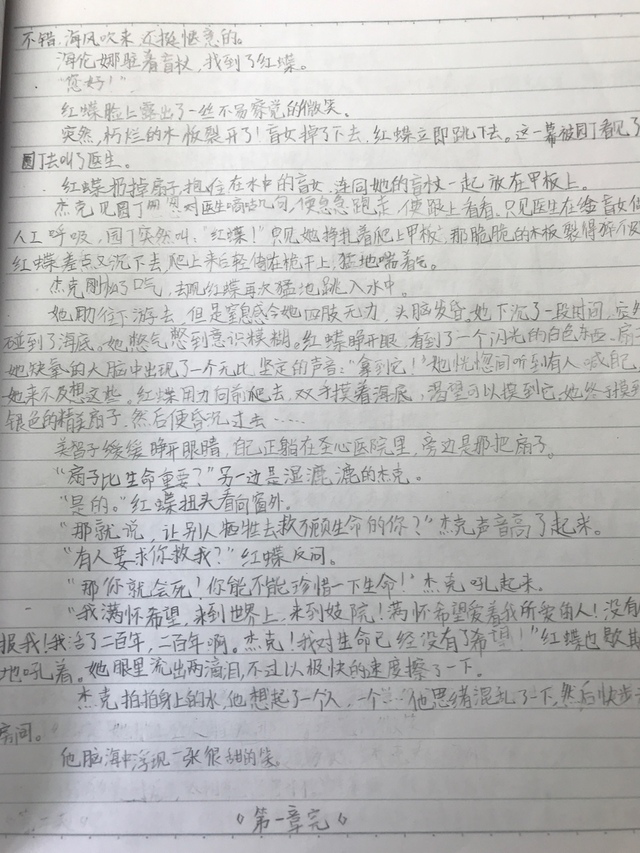 不错,海风吹来,还挺惬意的。
海伦娜驻着盲杖,我到了红蝶。
“您好!”
红蝶脸上露出了一丝不易察觉的微笑。
突然,朽烂的木板裂开了!盲女掉了下去,红蝶立即跳下去。这一幕被园丁看见了
园丁去叫了医生。
红蝶扔掉扇子,抱住在水中的盲女,连同她的盲杖一起放在甲板上。
杰克见园丁对医生嘀咕几句,便急急跑走,便跟上看看,只见医生在给盲女做
人工呼吸,园丁突然叫:“红蝶!”只见她挣扎着爬上甲板,那脆脆的木板裂得
红蝶差点又沉下去,爬上来后轻倚在桅杆上,猛地喘着气。
杰克刚松了口气,去见红蝶再次猛地跳入水中。
她助往下游去,但是窒息感令她四肢无力,头脑发昏,她下沉了一段时间,
碰到了海底。她憋气憋到意识模糊。红蝶睁开眼,看到了一个闪光的白色东西,扇
她缺氧的大脑中出现了一个无比坚定的声音:“拿到它!”她恍惚间听到有人喊自己,
她来不及想这些。红蝶用力向前爬去,双手摸着海底,渴望可以摸到它,她终于摸到
银色的精美扇子,然后便昏沉过去……
美智子缓缓睁开眼睛,自己正躺在圣心医院里,旁边是那把扇子。
“扇子比生命重要?”另一边是湿漉漉的杰克。
“是的。”红蝶扭头看向窗外。
“那就说,让别人牺牲去救不顾生命的你?”杰克声音高了起来。
“有人要求你救我?”红蝶反问。
“那你就会死!你能不能珍惜一下生命!”杰克吼起来。
“我满怀希望,来到世界上,来到妓院!满怀希望爱着我所爱的人!没有
报我!我活了二百年,二百年啊。杰克!我对生命已经没有了希望!”红蝶也歇斯
地吼着。她眼里流出两滴泪,不过以极快的速度擦了一下。
杰克拍拍身上的水,他想起了一个人,一个……他思绪混乱了一下,然后快步
房间。
他脑海中浮现一张很甜的笑
《第一章完》